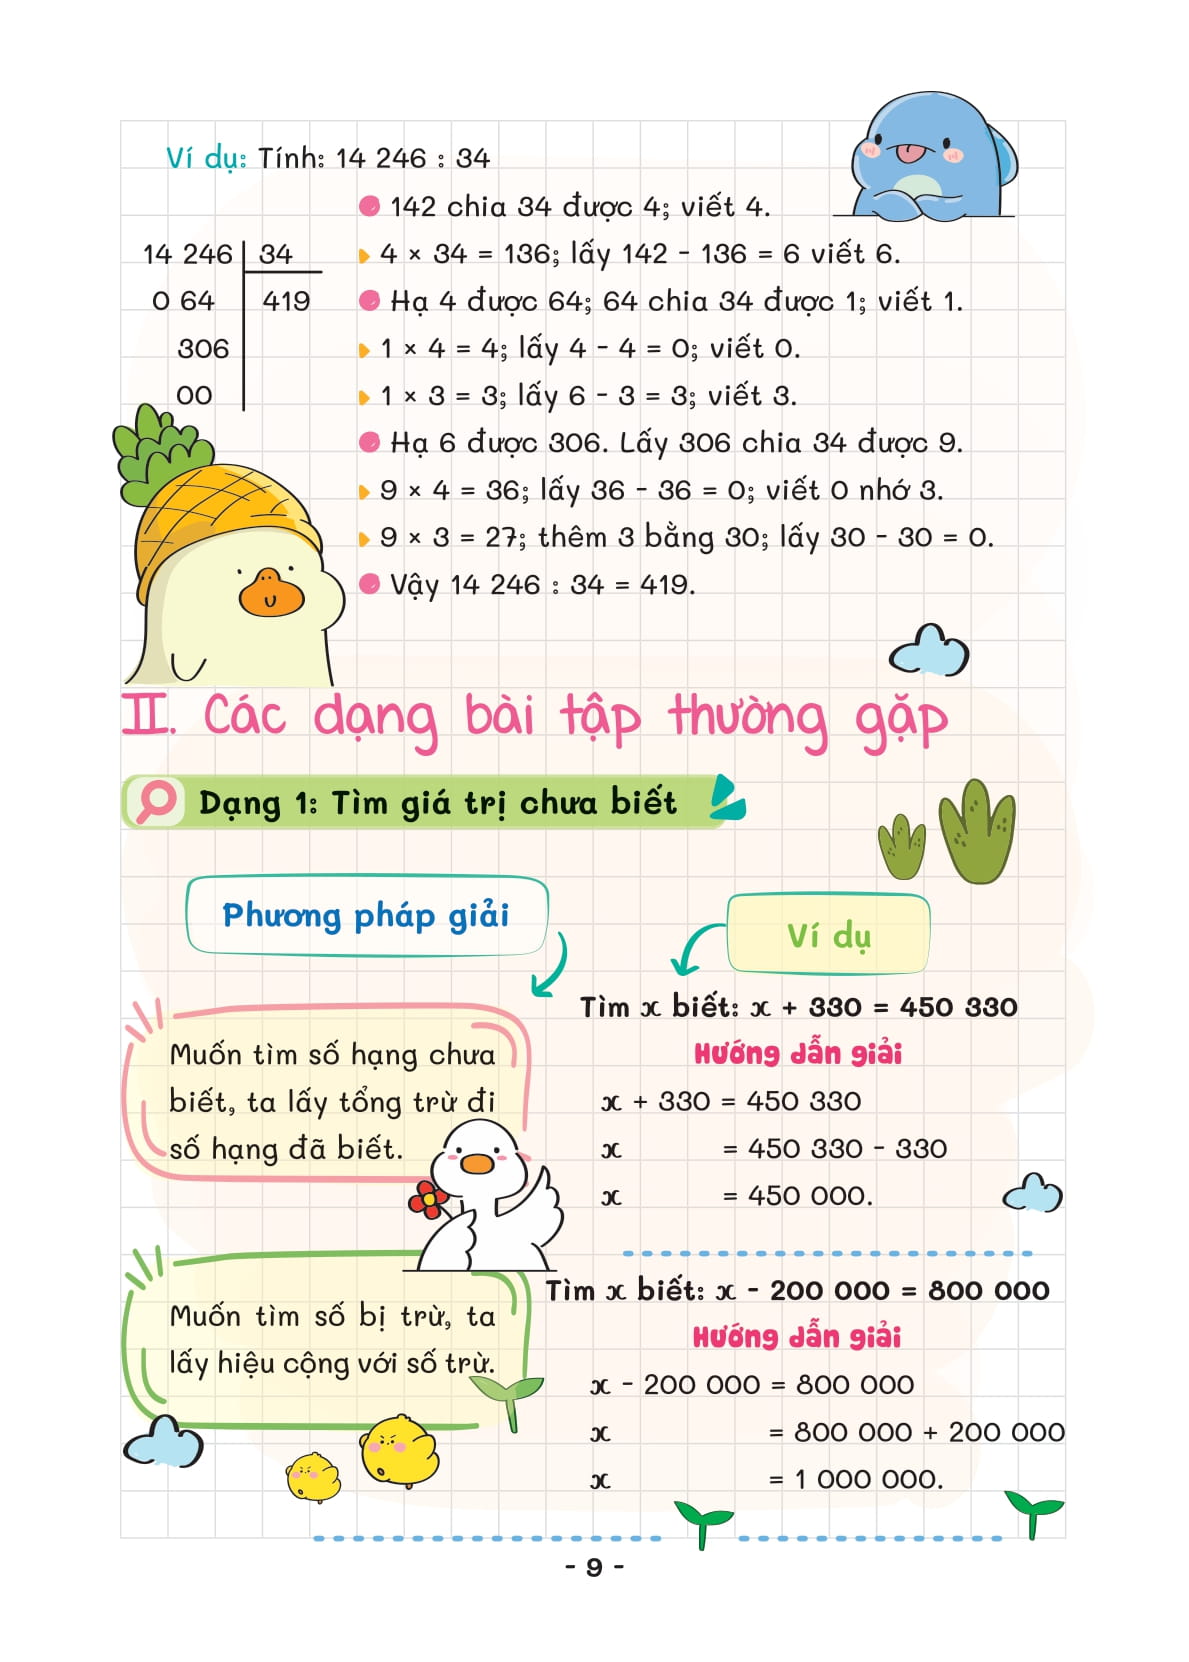 Ví dụ: Tính: 14 246 : 34
14 246 34
0 64 419
306
00
142 chia 34 được 4; viết 4.
4 × 34 = 136; lấy 142 - 136 = 6 viết 6.
Hạ 4 được 64; 64 chia 34 được 1; viết 1.
1 × 4 = 4; lấy 4 - 4 = 0; viết 0.
1 × 3 = 3; lấy 6 - 3 = 3; viết 3.
Hạ 6 được 306. Lấy 306 chia 34 được 9.
9 × 4 = 36; lấy 36 - 36 = 0; viết 0 nhớ 3.
9 × 3 = 27; thêm 3 bằng 30; lấy 30 - 30 = 0.
Vậy 14 246 : 34 = 419.
II. Các dạng bài tập thường gặp
Dạng 1: Tìm giá trị chưa biết
Phương pháp giải
Ví dụ
Muốn tìm số hạng chưa
biết, ta lấy tổng trừ đi
số hạng đã biết.
Tìm x biết: x + 330 = 450 330
Hướng dẫn giải
x + 330 = 450 330
x = 450 330 - 330
x = 450 000.
Muốn tìm số bị trừ, ta
lấy hiệu cộng với số trừ.
Tìm x biết: x - 200 000 = 800 000
Hướng dẫn giải
x - 200 000 = 800 000
x = 800 000 + 200 000
x = 1 000 000.
- 9 -